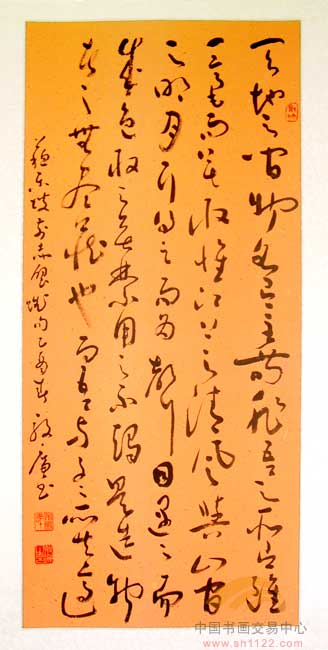 天地之間物各有主苟非吾之所有雖
一毫而莫取惟江上之清風與山間
之明月耳得之而為聲目遇之而
成色取之無禁用之不竭是造物
者之無盡藏也而吾與子之所共適
蘇東坡前赤壁賦句乙酉春
中国书画交易中心
www.sh1122.com